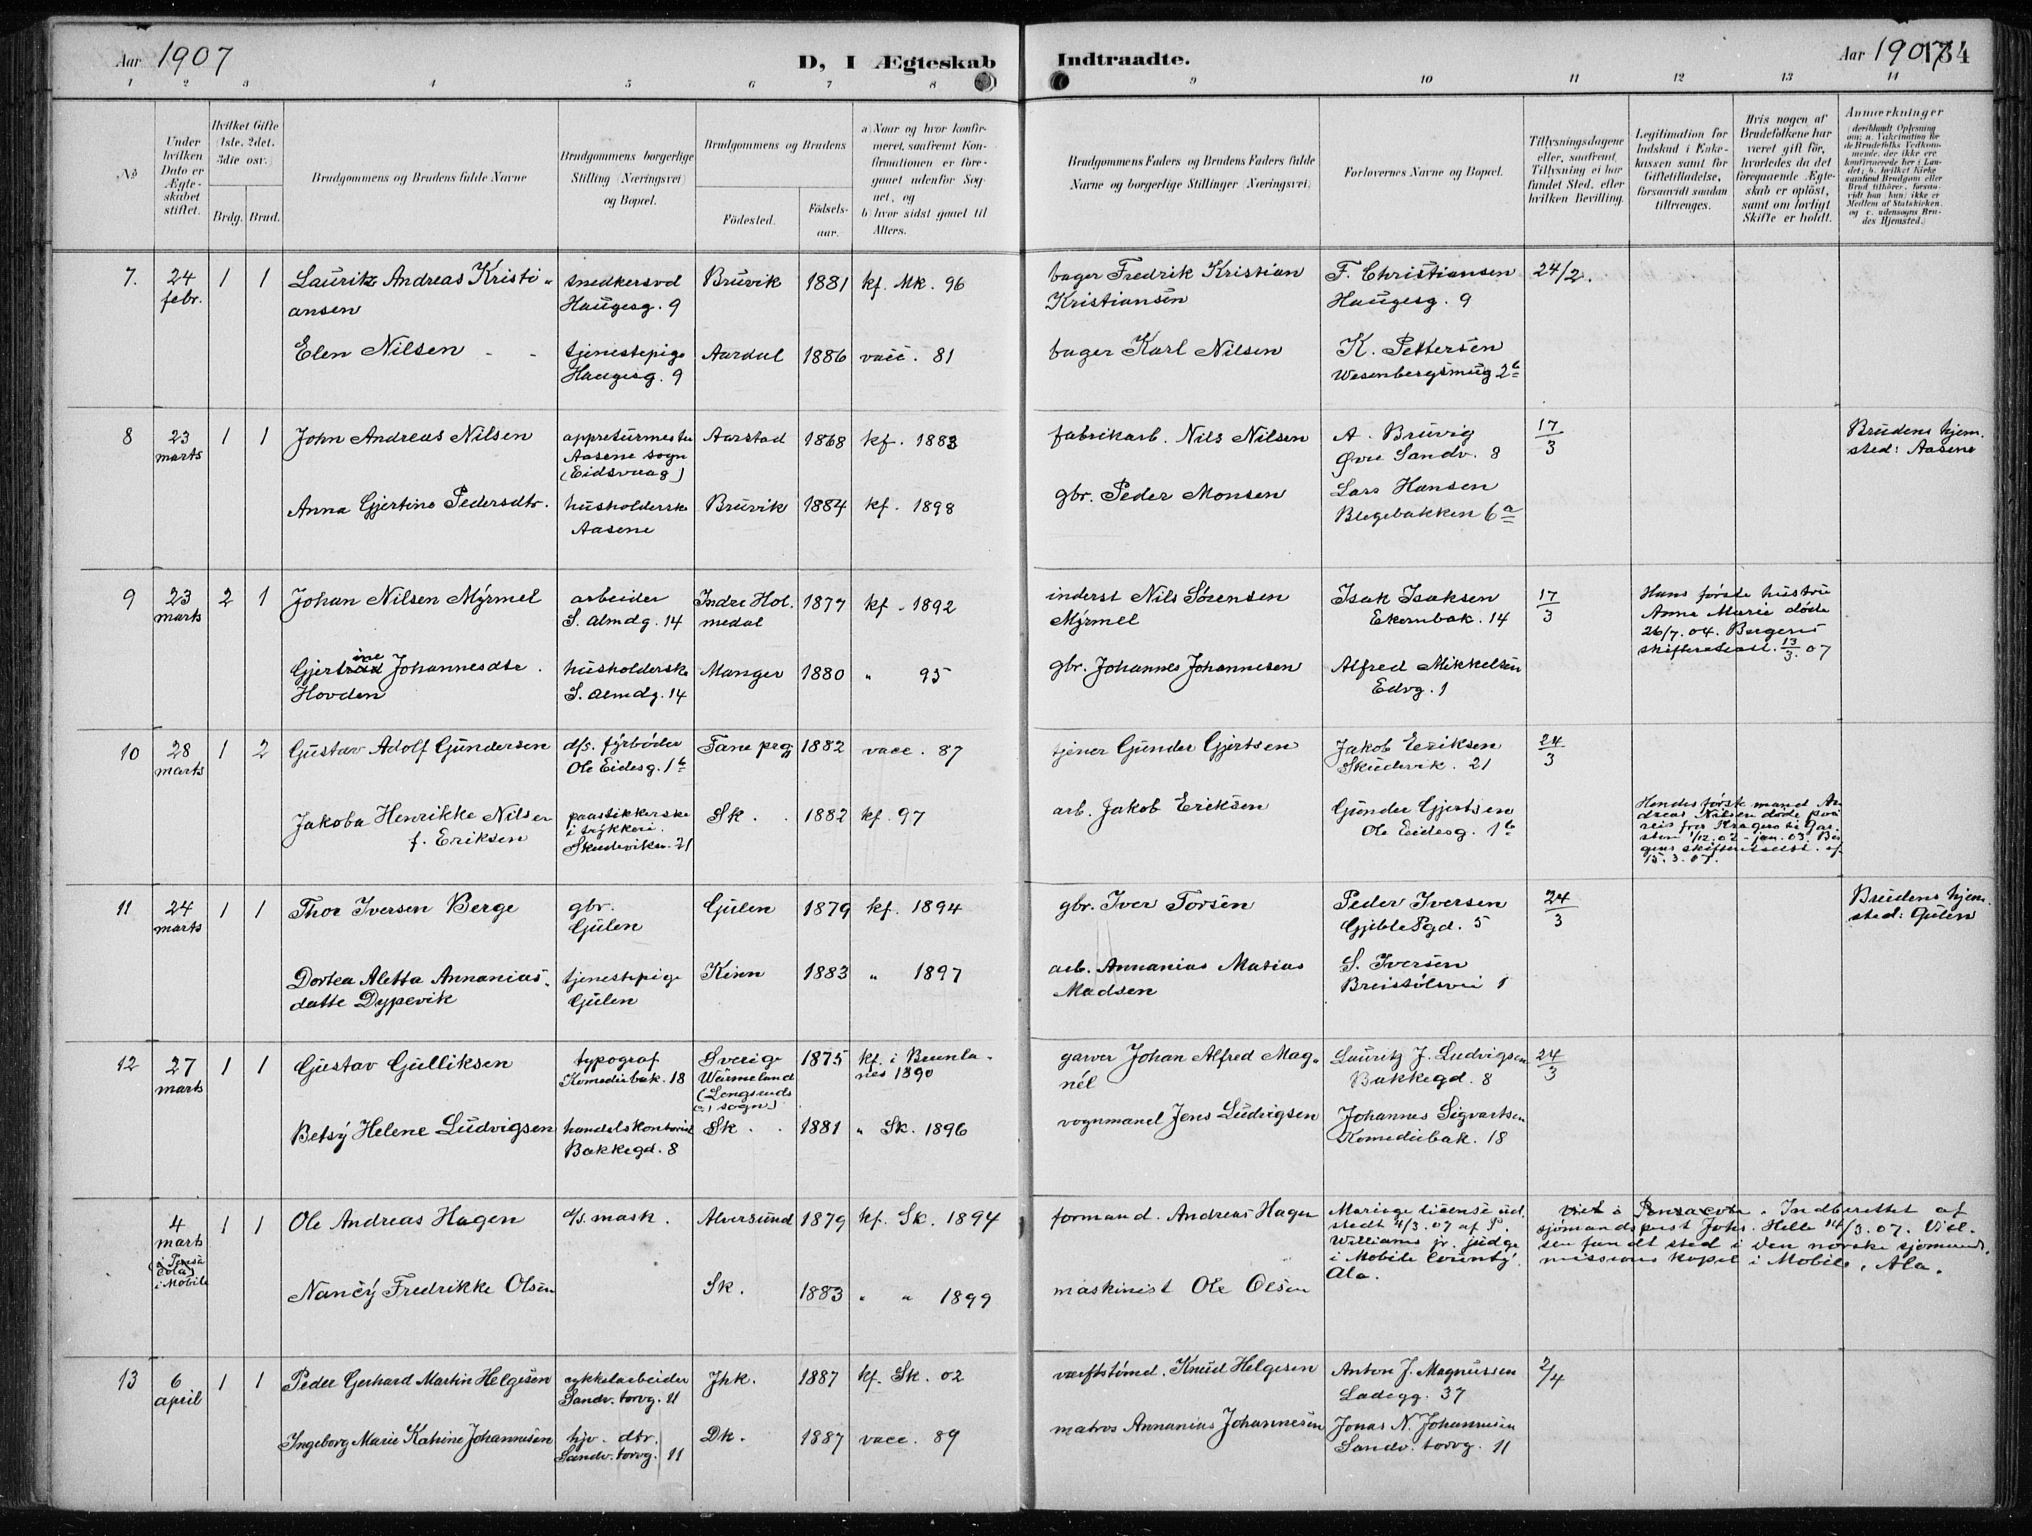 Aar 1907
D, I Ægteskab
Indtraadte.
Aar 1907
134
1 2 3 4 5 6 7 8 9 10 11 12 13 14
No
Under hvilken Dato er Ægteskabet stiftet.
Hvilket Gifte (1ste. 2det. 3die osv.)
Brdg. Brud.
Brudgommens og Brudens fulde Navne
Brudgommens borgerlige Stilling (Næringsvei) og Bopæl.
Brudgommens og Brudens
Födested.
Födsels-aar.
a) Naar og hvor konfirmeret, saafremt Konfirmationen er foregaaet udenfor Sognet, og
b) hvor sidst gaaet til Alters.
Brudgommens Faders og Brudens Faders fulde Navne og borgerlige Stillinger (Næringsvei).
Forlovernes Navne og Bopæl.
Tillysningsdagene eller, saafremt Tillysning ei har fundet Sted, efter hvilken Bevilling.
Legitimation for Indskud i Enkekassen samt for Giftetilladelse, forsaavidt saadan tiltrænges.
Hvis nogen af Brudefolkene har været gift för, hvorledes da det foregaaende Ægteskab er oplöst, samt om lovligt Skifte er holdt.
Anmærkninger
(deriblandt Oplysning om: a. Vakcination for de Brudefolks Vedkommende, der ikke ere konfirmerede her i Landet; b. hvilket Kirkesamfund Brudgom eller Brud tilhörer, forsaavidt han (hun) ikke er Medlem af Statskirken, og c. udensogns Brudes Hjemsted.)
7. 24 febr. 1 1 Lauritz Andreas Kristiansen snedkersvd Haugesg. 9 Bruvik 1881 kf. Mk. 96 bager Fredrik Kristian Kristiansen F. Christiansen Haugesg. 9 24/2.
Elen Nilsen tjenestepige Haugesg. 9 Aardal 1886 vacc. 81 bager Karl Nilsen K. Pettersen Wesenbergsmug 2b
8 23 marts 1 1 John Andreas Nilsen appreturmester Aasene sogn (Eidsvaag) Aarstad 1868 kf. 1883 fabrikarb. Nils Nilsen A. Bruvig Øvre Sandv. 8 17/3 Brudens hjemsted: Aasene
Anna Gjertine Pedersdtr. husholderske Aasene Bruvik 1884 kf. 1898 gbr. Peder Monsen Lars Hansen Blegebakken 6a
9 23 marts 2 1 Johan Nilsen Myrmel arbeider S. Almdg. 14 Indre Holmedal 1877 kf. 1892 inderst Nils Sørensen Myrmel Isak Isaksen Ekernbak. 14 17/3 Hans første hustru Anne Marie døde 26/7. 04. Bergens skifteratteast. 13/3. 07
Gjertine Johannesdtr. Hovden husholderske S. Almdg. 14 Manger 1880 " 95 gbr. Johannes Johannesen Alfred Mikkelsen Edvg. 1
10 28 marts 1 2 Gustav Adolf Gundersen d/s. fyrbøder Ole Eidesg. 1b Fane prgj 1882 vacc. 87 tjener Gunder Gjertsen Jakob Eriksen Skudevik. 21 24/3
Jakoba Henrikke Nilsen f. Eriksen paastikkerske i trykkeri. Skudeviken. 21 Sk. 1882 kf. 97 arb. Jakob Eriksen Gunder Gjertsen Ole Eidesg. 1b Hendes første mand Andreas Nilsen døde paa reis fra Kragerø til 1/12. 02 - jan. 03. Bergens skifteretsatt. af 15. 3. 07.
11 24 marts 1 1 Thor Iversen Berge gbr. Gulen Gulen 1879 kf. 1894 gbr. Iver Torsen Peder Iversen Gjeble Pgd. 5 24/3 Brudens hjemsted: Gulen
Dortea Aletta Annaniasdatte Dypevik tjenestepige Gulen Kinn 1883 " 1897 arb. Annanias Matias Madsen S. Iversen Breistølsvei 1
12 27 marts 1 1 Gustav Gulliksen typograf Komediebak. 18 Sverige Wärmeland (Longsunds sogn) 1875 kf. i Brunlanes 1890 garver Johan Alfred Magnél Lauritz J. Ludvigsen Bakkegd. 8 24/3
Betsy Helene Ludvigsen handelskontorist Bakkegd. 8 Sk. 1881 " Sk. 1896 vognmand Jens Ludvigsen Johannes Sigvartsen Komediebak. 18
4 marts i Mobile 1 1 Ole Andreas Hagen d/s. mask. Alversund 1879 kf. Sk. 1894 formand. Andreas Hagen Mariage license udstedt 4/3. 07 af P. Williams jr. judge i Mobile County. Ala. Viet i Pensacola. Indberettet af sjømandsprest Johs. Helle 14/3. 07. Vielsen fandt sted i den norske sjømandsmissions kapel i Mobile, Ala.
Nancy Fredrikke Olsen Sk. 1883 " " 1899 maskinist Ole Olsen
13 6 april 1 1 Peder Gerhard Martin Helgesen cykkelarbeider Sandv. torvg. 11 Jhk. 1887 kf. Sk. 02 værftstømd. Knud Helgesen Anton J. Magnussen Ladegg. 37 2/4
Ingeborg Marie Katrine Johannesen hjv. dtr. Sandv. torvg. 11 Dk. 1887 vacc. 89 matros Annanias Johannesen Jonas N. Johannesen Sandv. torvg. 11